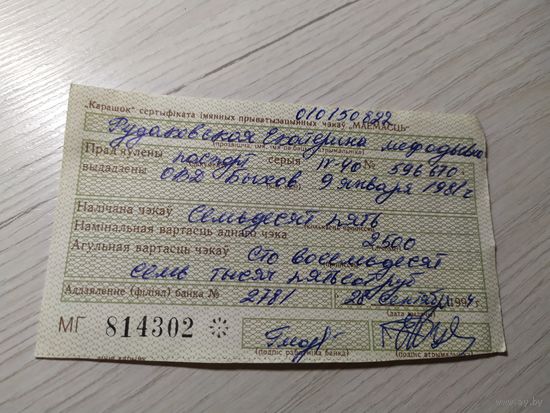 010150822
„Карашок“ сертыфіката імянных прыватызацыйных чэкаў „МАЁМАСЦЬ“
Рудаковская Екатерина Мефодьевна
Прад'яўлены паспорт серыя IV-ЧО № 596670
выдадзены ОВД Быхов 9 января 1981 г
Налічана чэкаў Семьдесят пять
Намінальная вартасць аднаго чэка 2500
Агульная вартасць чэкаў Сто восемьдесят
семь тысяч пятьсот руб
Аддзяленне (філіял) банка № 2781 28 сентября 1994 г.
МГ 814302
(подпіс работніка банка) (подпіс атрымальніка)
ay.by